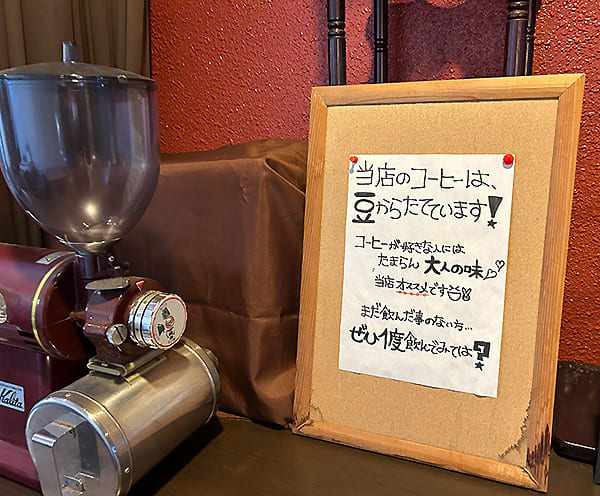 当店のコーヒーは、
豆からたてています!
コーヒーが好きな人には
たまらん 大人の味♡♡
当店 オススメです
まだ飲んだ事のない方...
ぜひ1度飲んでみては?
Kalita